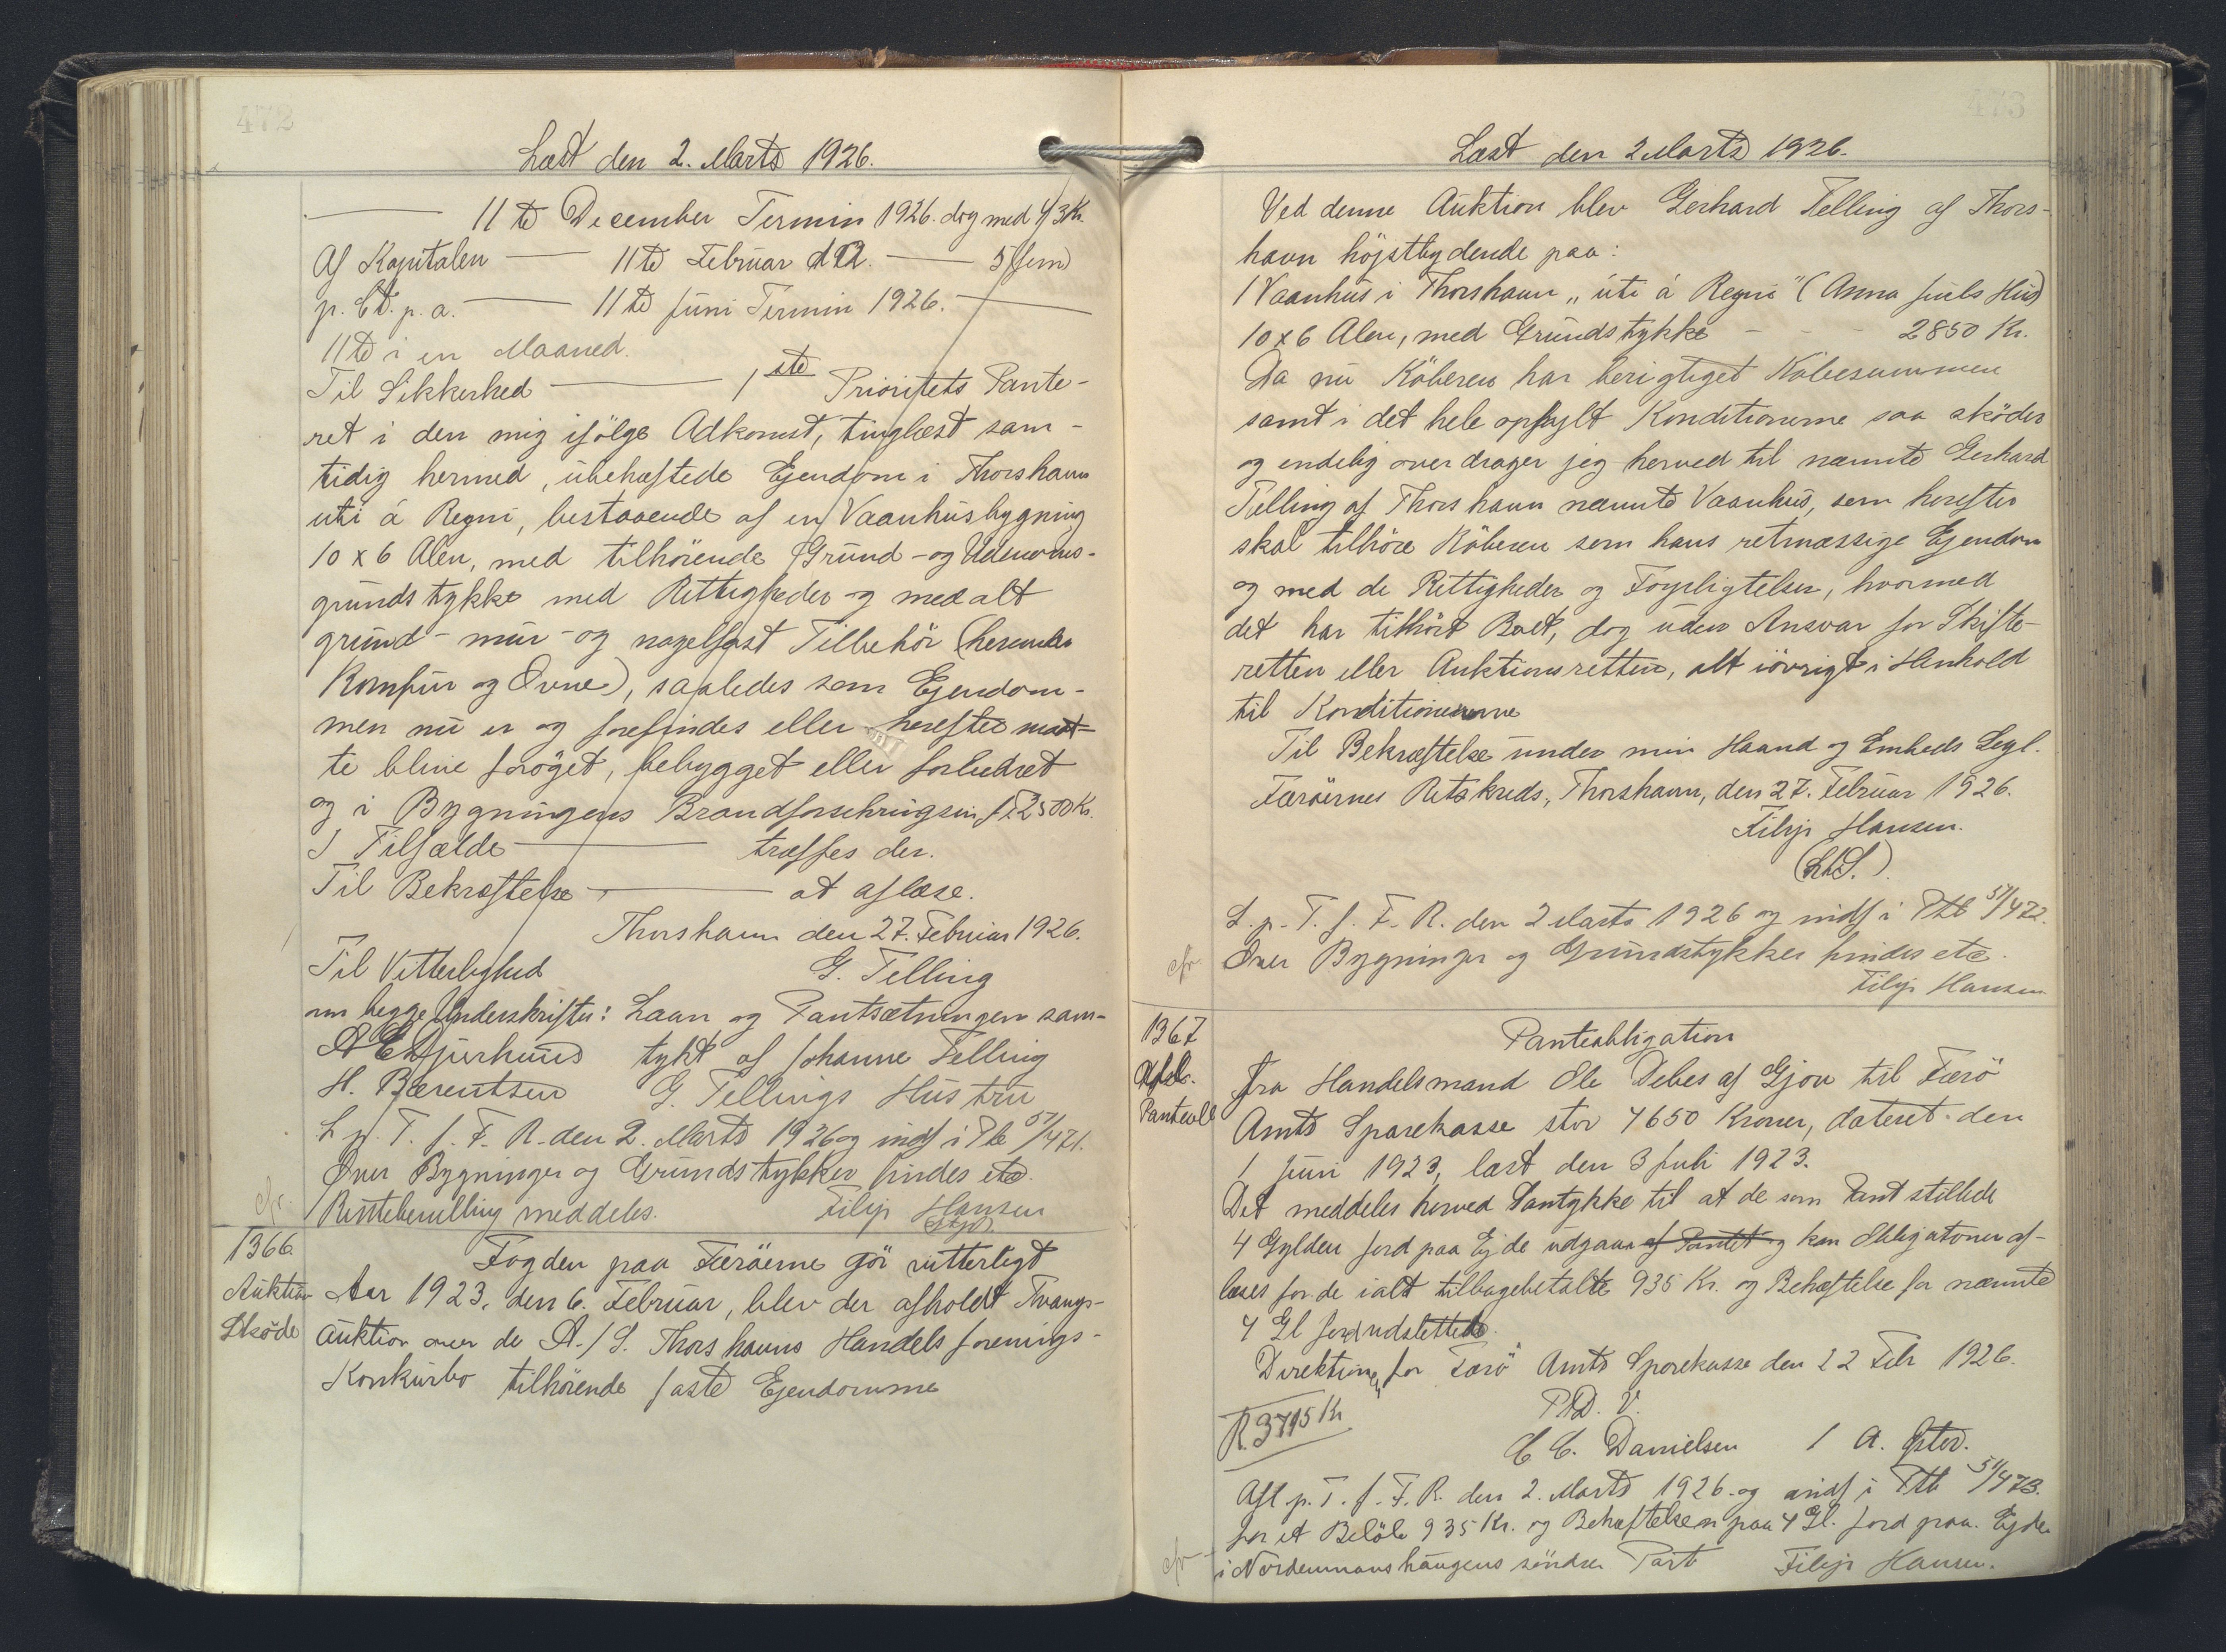 472
Læst den 2. Marts 1926.
11te December Termin 1926. dog med 43 Kr.
Af Kapitalen — 11te Februar d.A. — 5 (fem)
p. Ct. p. a. — 11te Juni Termin 1926. —
11te i en Maaned.
Til Sikkerhed — 1ste Prioritets Pante-
ret i den mig ifölge Adkomst, tinglæst sam-
tidig hermed, ubehæftede Ejendom i Thorshavn
uti á Regni, bestaaende af en Vaanhusbygning
10 x 6 Alen, med tilhörende Grund- og Udenoms-
grundstykke med Rettigheder og med alt
grund- mur- og nagelfast Tilbehör (herunder
Komfur og Ovne), saaledes som Ejendom-
men nu er og forefindes eller herefter maat-
te blive foröget, bebygget eller forbedret
og i Bygningens Brandforsikringssum 2500 Kr.
I Tilfælde — træffes der.
Til Bekræftelse — at aflæse.
Thorshavn den 27. Februar 1926.
Til Vitterlighed G. Telling
om begge Underskrifter: Laan og Pantsætningen sam-
Djurhuus tykt af Johanne Telling
H. Bærentsen G. Tellings Hustru
L. p. T. f. F. R. den 2. Marts 1926 og indf i Ptb 51/471.
Over Bygninger og Grundstykker findes etc.
cfr. Rentebevilling meddeles. Filip Hansen
1366.
Auktions
Sköde
Fogden paa Færöerne gör vitterligt
Aar 1923, den 6. Februar, blev der afholdt Tvangs-
auktion over de A./S. Thorshavns Handelsforenings-
Konkursbo tilhörende faste Ejendomme
473
Læst den 2 Marts 1926.
Ved denne Auktion blev Gerhard Telling af Thors-
havn höjstbydende paa:
1 Vaanhus i Thorshavn „úti á Regni" (Anna Juuls Hus)
10 x 6 Alen, med Grundstykke - - - 2850 Kr.
Da nu Köberen har berigtiget Köbesummen
samt i det hele opfylt Konditionerne saa sköder
og endelig overdrager jeg herved til nævnte Gerhard
Telling af Thorshavn nævnte Vaanhus, som herefter
skal tilhöre Köberen som hans retmæssige Ejendom
og med de Rettigheder og Forpligtelser, hvormed
det har tilhört Boet, dog uden Ansvar for Skifte-
retten eller Auktionsretten, alt iövrigt i Henhold
til Konditionerne
Til Bekræftelse under min Haand og Embeds Segl.
Færöernes Retskreds, Thorshavn, den 27. Februar 1926.
Filip Hansen.
(L.S.).
L. p. T. f. F. R. den 2 Marts 1926 og indf i Ptb 51/472.
cfr. Over Bygninger og Grundstykker findes etc.
Filip Hansen
1367
Afl.
Panteobl
Panteobligation
fra Handelsmand Ole Debes af Gjov til Færö
Amts Sparekasse stor 4650 Kroner, dateret den
1 Juni 1923, læst den 3 Juli 1923.
Det meddeles herved Samtykke til at de som Pant stillede
4 Gylden Jord paa Ejde udgaar af Pantet og kan Obligationen af-
læses for de ialt tilbagebetalte 935 Kr. og Behæftelse for nævnte
4 Gl Jord udslettede.
Direktionen for Færö Amts Sparekasse den 22 Febr 1926.
R. 3715 Kr P.D. V.
C C. Danielsen / A. Öster.
Afl. p. T. f. F. R. den 2. Marts 1926. og indf i Ptb 51/473.
for et Belöb 935 Kr. og Behæftelsen paa 4 Gl. Jord paa Ejde
cfr i Nordenmanshaugens söndre Part Filip Hansen.